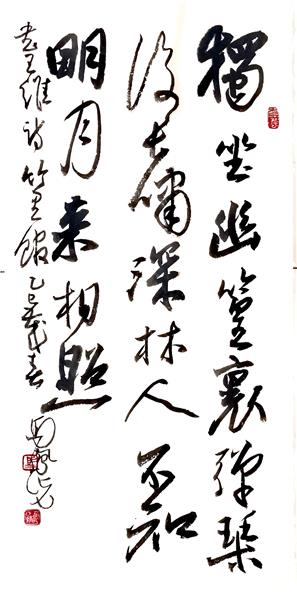 獨坐幽篁裏彈琴
復長嘯深林人不知
明月來相照
書王維詩竹里館乙巳歲春